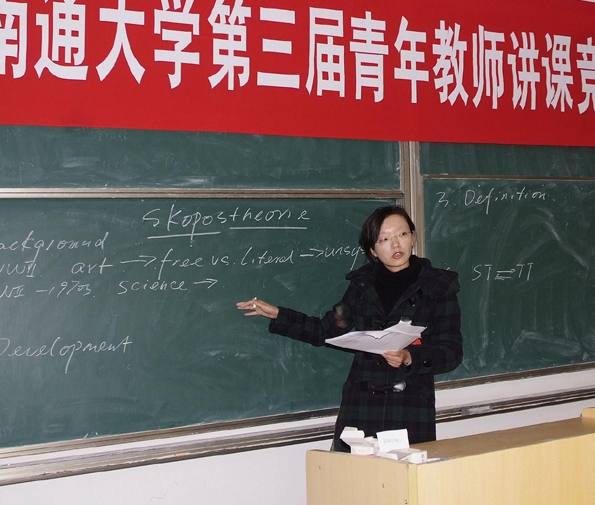 南通大学第三届青年教师讲课竞
Skopostheorie
ackground
WWII art → free vs. literal → unsys
WII - 1970s. science →
Development
3. Definition.
ST ⇄ TT